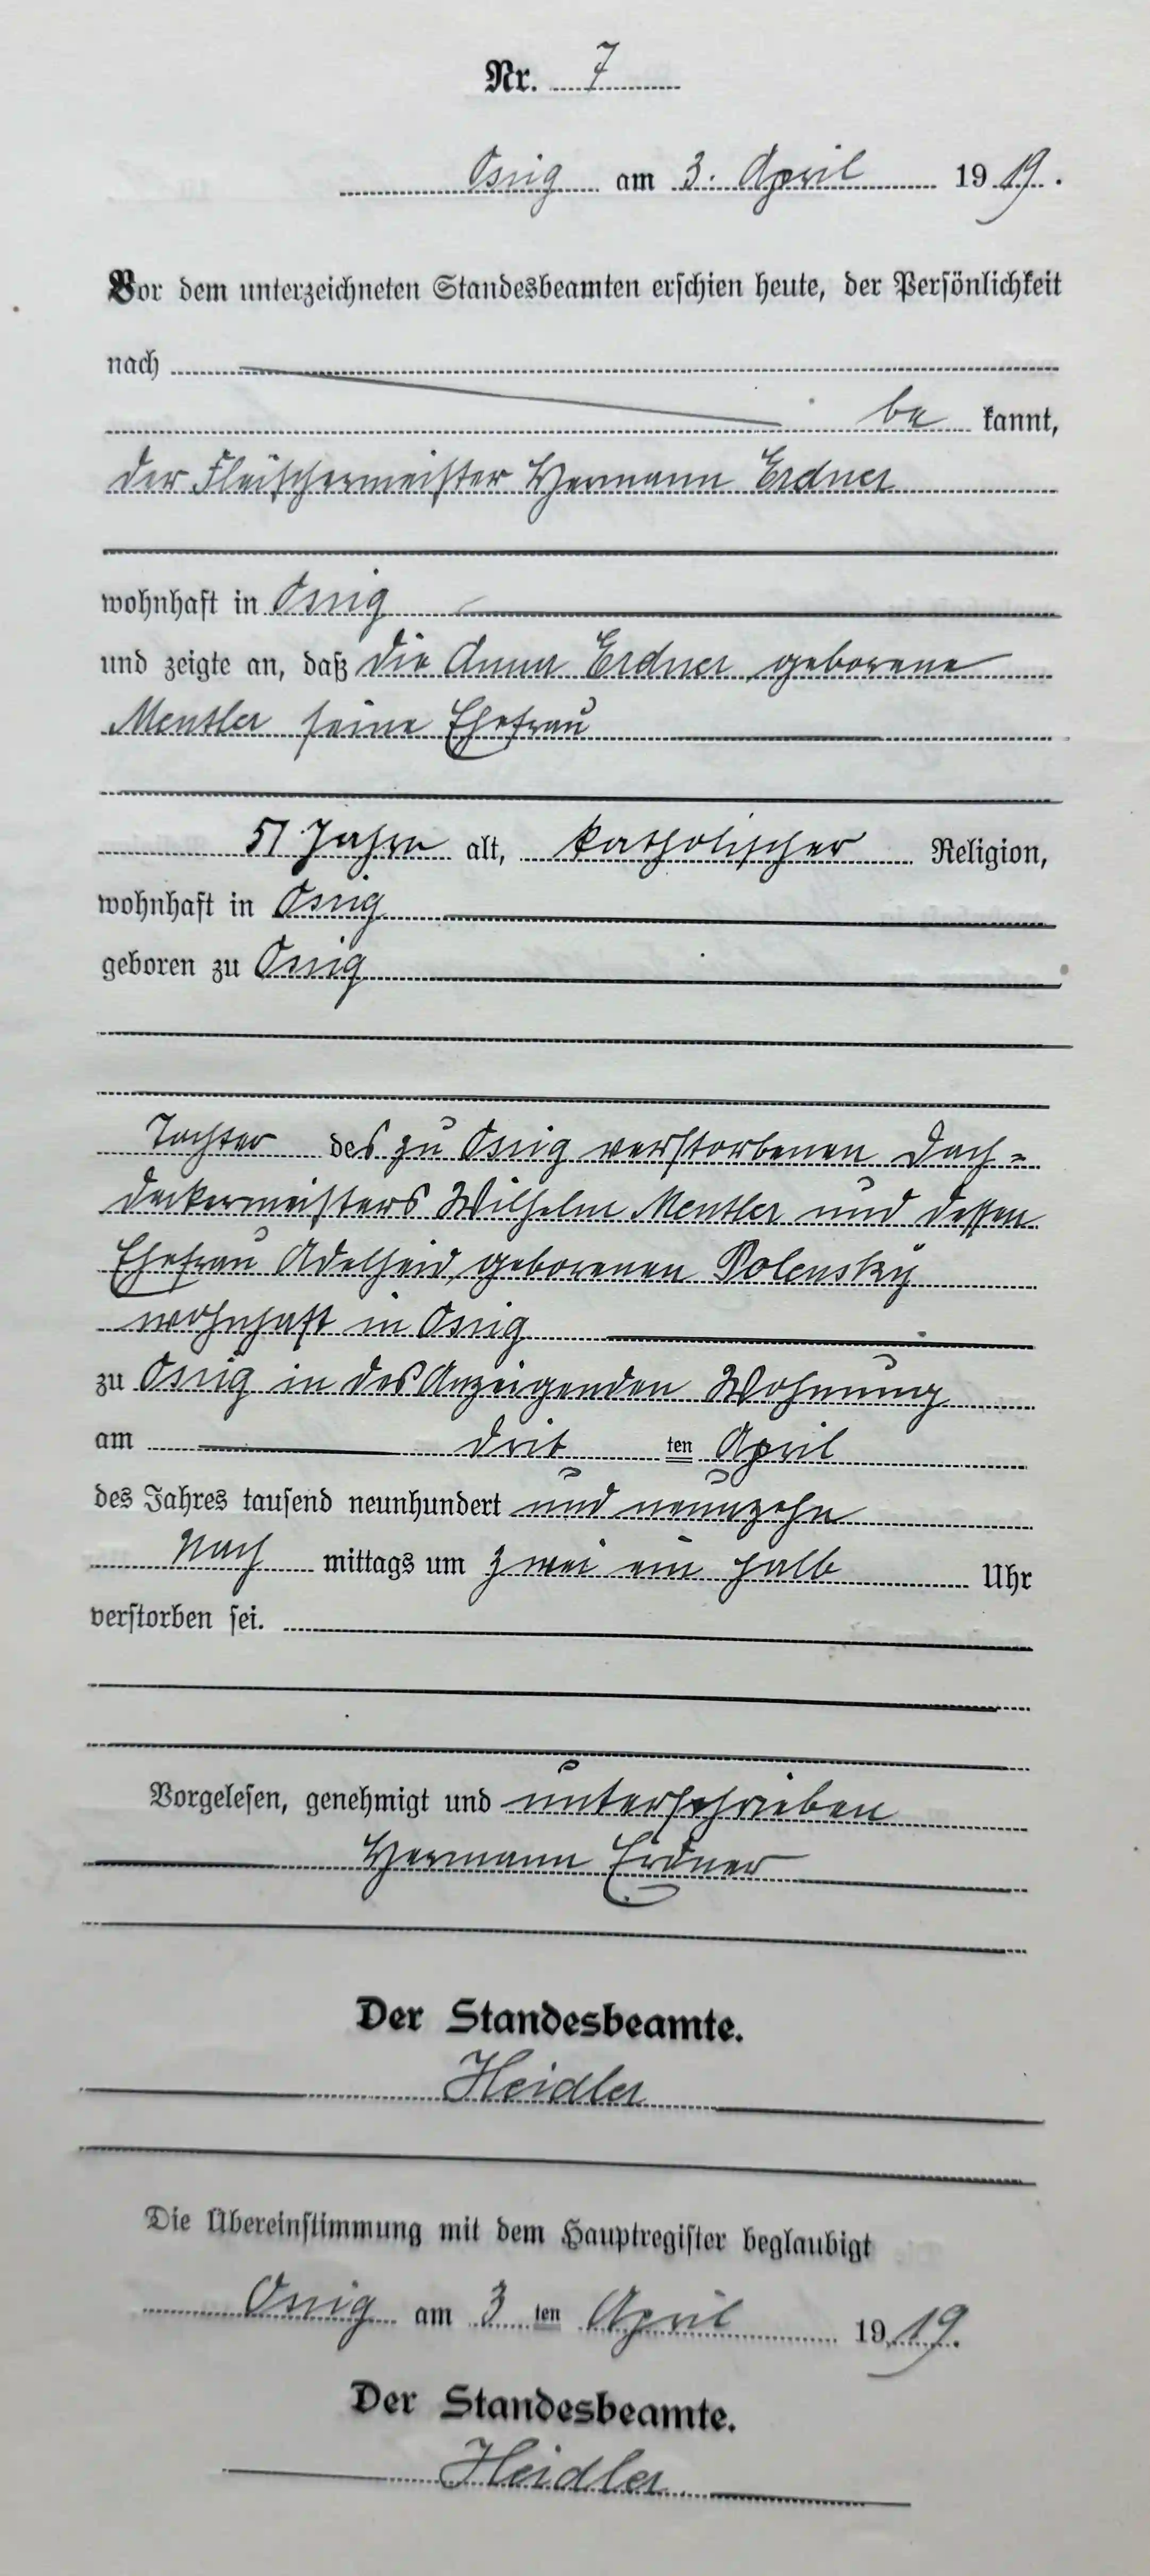 Nr. 7
Ossig am 3. April 1919.
Vor dem unterzeichneten Standesbeamten erschien heute, der Persönlichkeit
nach
be kannt,
der Fleischermeister Hermann Erdner
wohnhaft in Ossig
und zeigte an, daß die Anna Erdner geborene
Mentler seine Ehefrau
51 Jahre alt, katholischer Religion,
wohnhaft in Ossig
geboren zu Ossig
Tochter des zu Ossig verstorbenen Dach-
deckermeisters Wilhelm Mentler und dessen
Ehefrau Adelheid geborenen Polensky
wohnhaft in Ossig
zu Ossig in des Anzeigenden Wohnung
am drit ten April
des Jahres tausend neunhundert und neunzehn
Nach mittags um zwei ein halb Uhr
verstorben sei.
Vorgelesen, genehmigt und unterschrieben
Hermann Erdner
Der Standesbeamte.
Heidler
Die Übereinstimmung mit dem Hauptregister beglaubigt
Ossig am 3 ten April 1919.
Der Standesbeamte.
Heidler